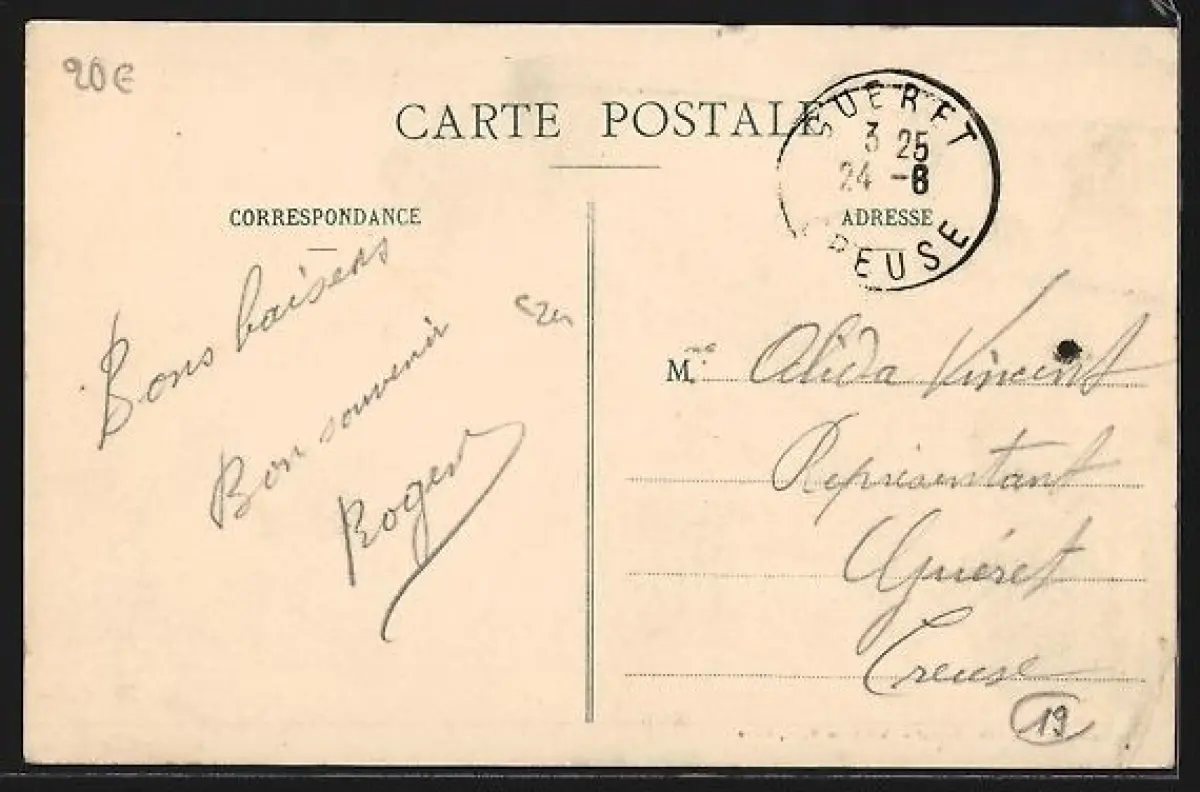 20€
CARTE POSTALE
GUERET
3 25
24 -8
CREUSE
CORRESPONDANCE
ADRESSE
Bons baisers
Bon souvenir
Roger
Mme Alida Vincent
Représentant
Guéret
Creuse
19